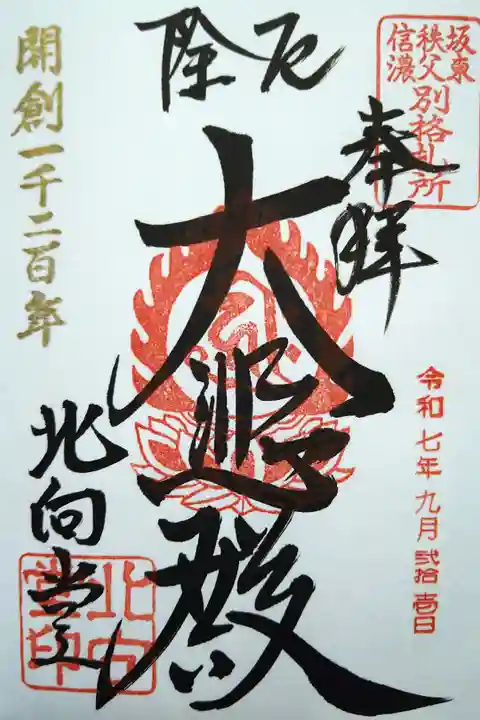 坂東
秩父
信濃
別格札所
奉拝
厄除
大悲殿
北向堂
開創一千二百年
令和七年九月弐拾壱日